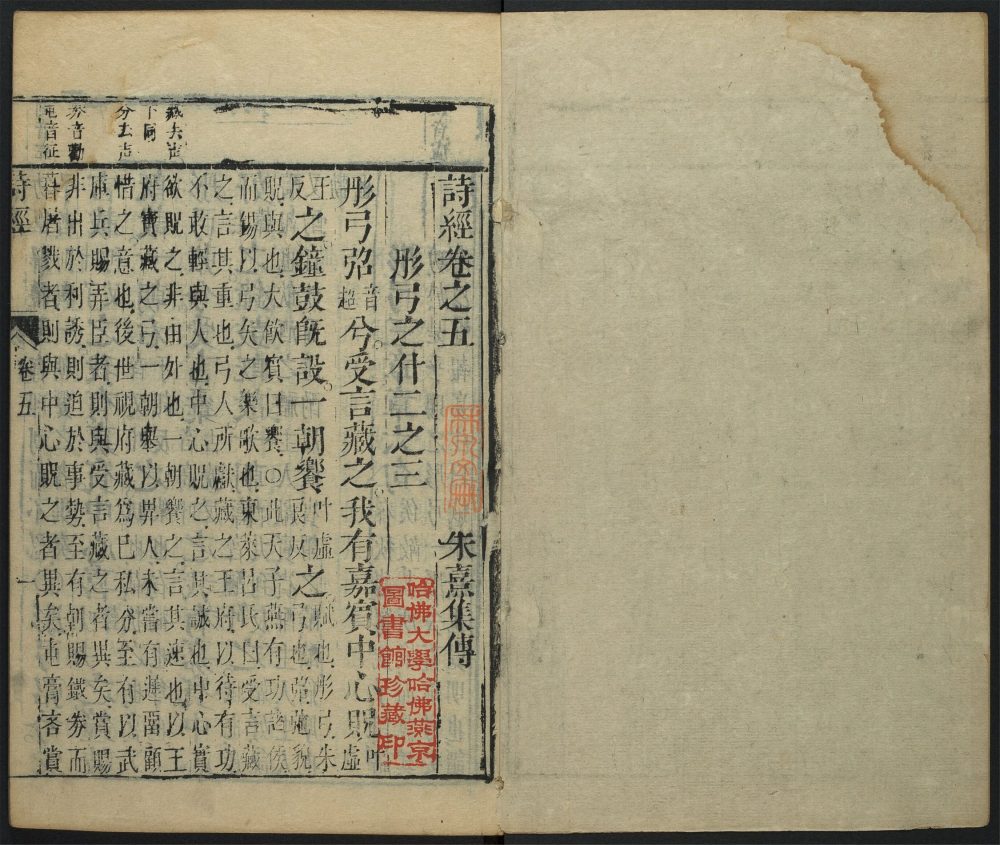 詩經卷之五 朱熹集傳
彤弓之什二之三
彤弓弨音超兮受言藏之我有嘉賓中心貺叶虛
王反之鐘鼓既設一朝饗叶虛良反之賦也彤弓朱
弓也弨弛貌
貺與也大飲賓曰饗○此天子燕有功諸侯
而錫以弓矢之樂歌也東萊呂氏曰受言藏
之言其重也弓人所獻藏之王府以待有功
不敢輕與人也中心貺之言其誠也中心實
欲貺之非由外也一朝饗之言其速也以王
府寶藏之弓一朝舉以畀人未嘗有遲留顧
惜之意也後世視府藏爲己私分至有以武
庫兵賜弄臣者則與受言藏之者異矣賞賜
非出於利誘則迫於事勢至有朝賜鐵券而
暮屠戮者則與中心貺之者異矣屯膏吝賞
藏去声
下同
分去声
券音勸
屯音征
詩經
卷五
一
哈佛大學哈佛燕京
圖書館珍藏印